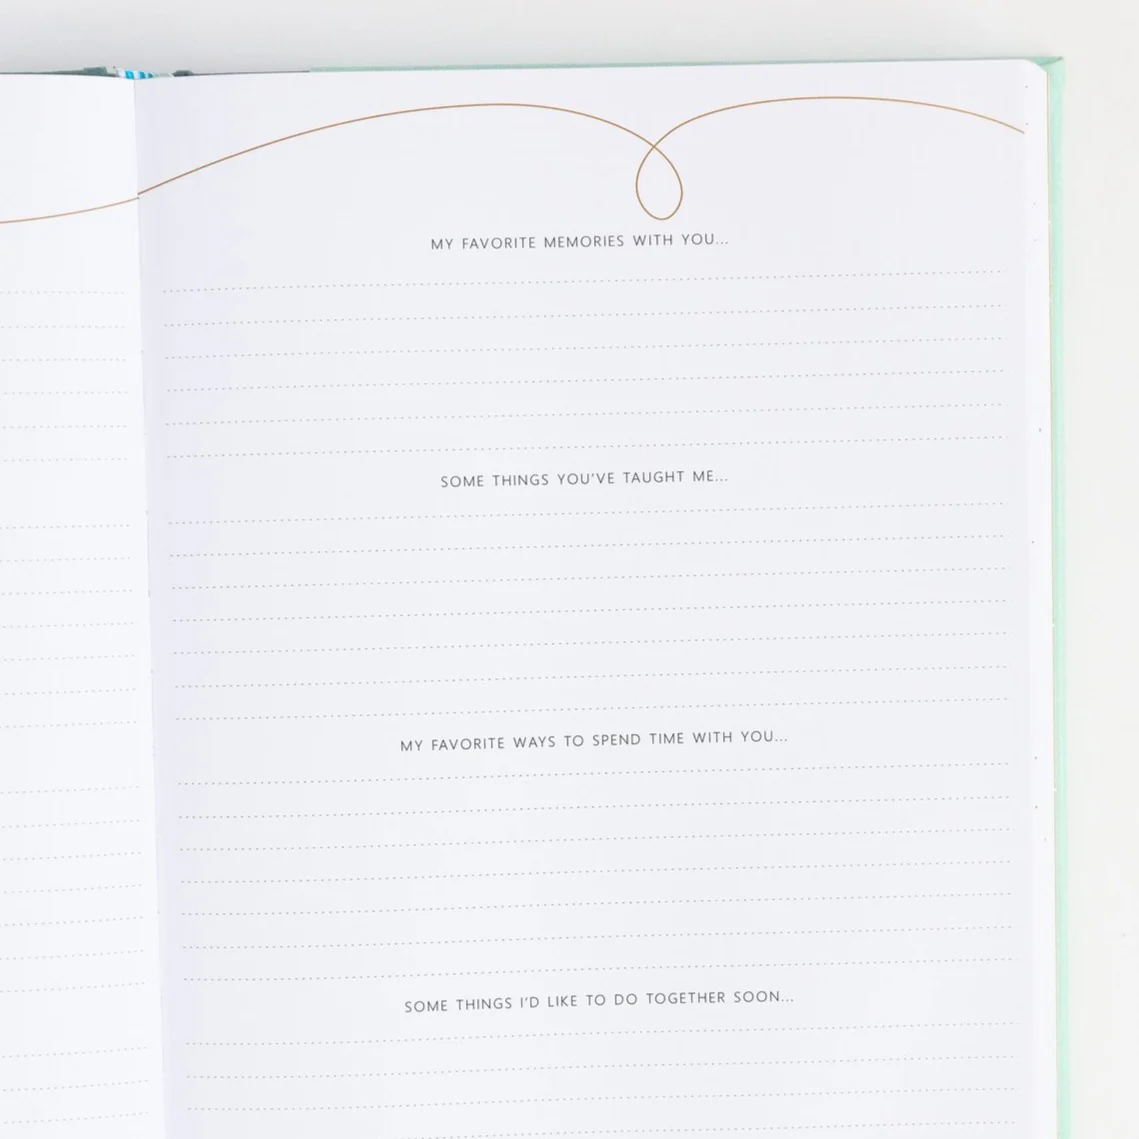 MY FAVORITE MEMORIES WITH YOU...
SOME THINGS YOU'VE TAUGHT ME...
MY FAVORITE WAYS TO SPEND TIME WITH YOU...
SOME THINGS I'D LIKE TO DO TOGETHER SOON...